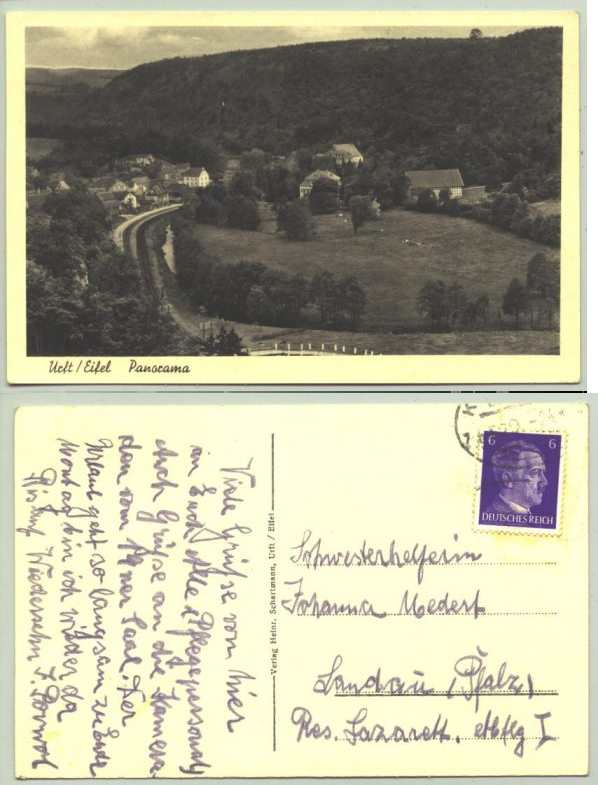 Urft / Eifel Panorama
6 6
DEUTSCHES REICH
Viele Grüße von hier
an Euch Alle (Pflegepersonal)
Auch Grüße an die Kamera-
den vom Saal. Der
Urlaub geht so langsam zu Ende
Montag bin ich wieder da
Bis auf Wiedersehn J.
Verlag Heinr. Schartmann, Urft / Eifel
Schwesterhelferin
Johanna
Landau (Pfalz)
Res. Lazarett. Abtlg I